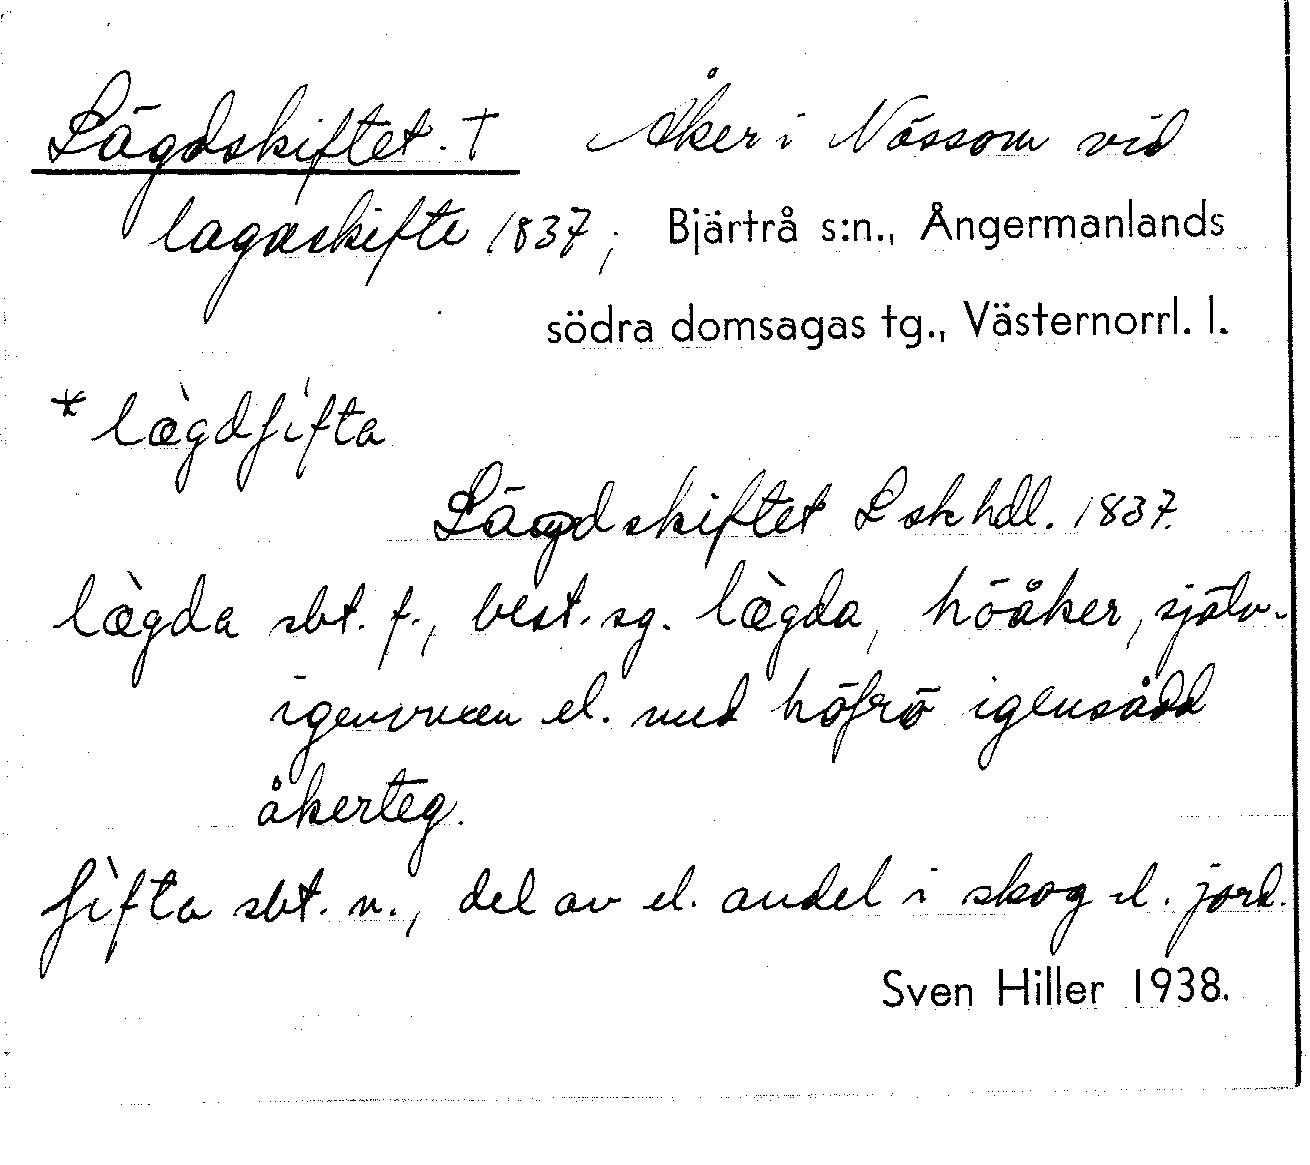 Lägdskiftet. † Åker i Nässom vid
lagaskifte 1837; Bjärtrå s:n., Ångermanlands
södra domsagas tg., Västernorrl. l.
* læ̀gdʃifta
Lägdskiftet L sk hdl. 1837.
læ̀gda sbt. f., best. sg. læ̀gda, höåker, själv-
igenvuxen el. med höfrö igensådd
åkerteg.
ʃìfta sbt. n., del av el. andel i skog el. jord.
Sven Hiller 1938.